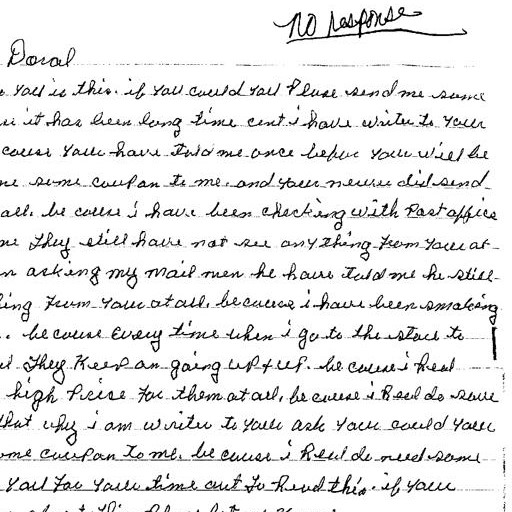 no response
Doral
you is this. if you could you Please send me some
it has been long time cent i have writer to your
couse your have told me once befor you will be
me some coupon to me. and your never did send
all. be couse i have been checking with Post office
me they still have not see any thing from your at
asking my mail men he have told me he still
ing from your at all. because i have been smoking
because Every time when i go to the store to
They Keep on going up & up. because i Real
high Prise for them at all, because i Real do save
that why i am writer to your ask your could your
ome coupon to me. be cause i Real do need some
you for your time out to Read this. if your